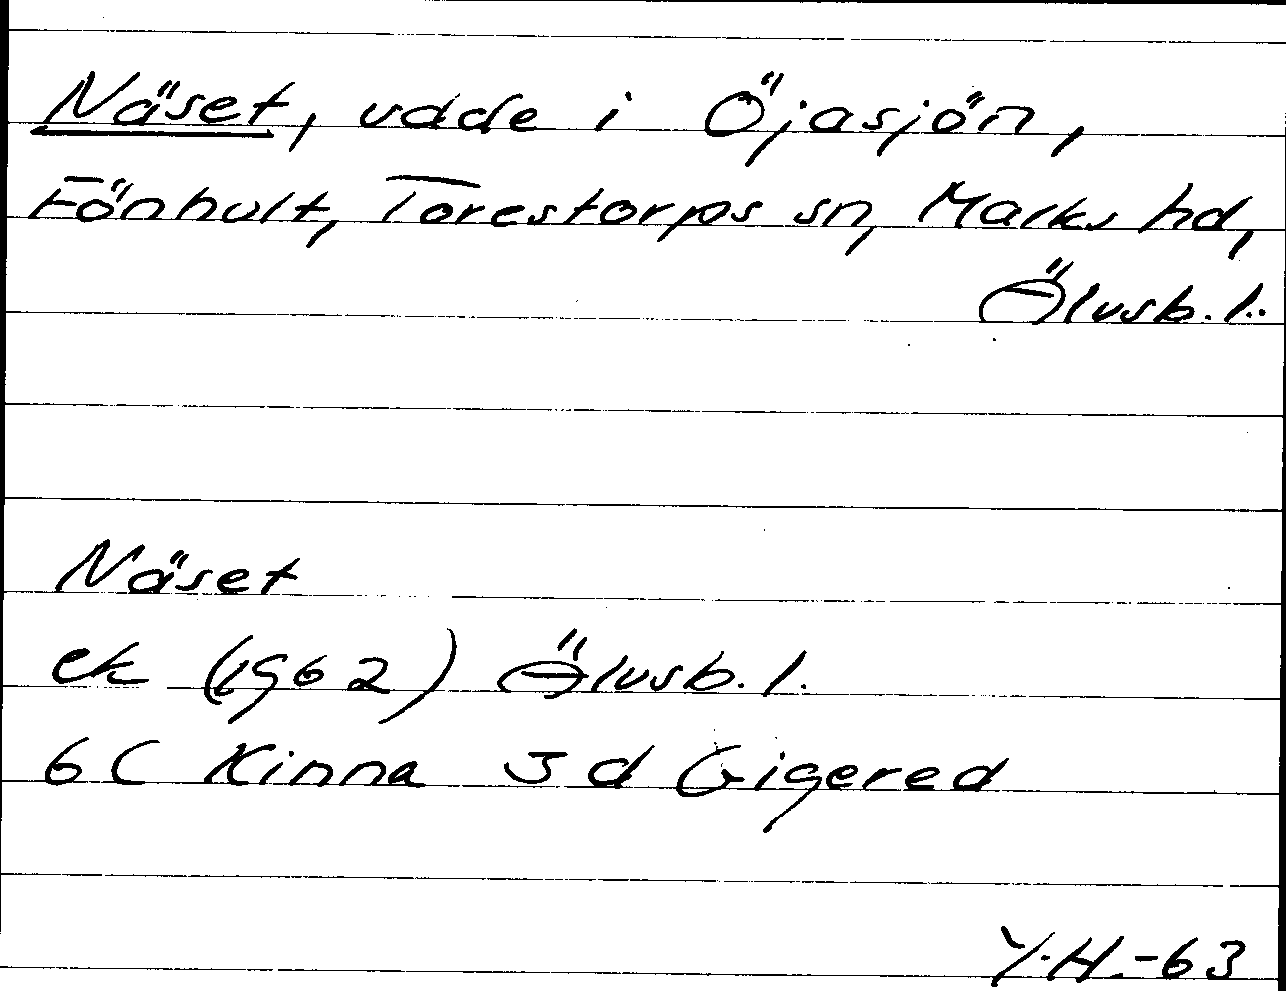 Näset, udde i Öjasjön,
Fönhult, Torestorps sn, Marks hd,
Älvsb. l.
Näset
ek (1962) Älvsb. l.
6 C Kinna 5 d Gigered
Y.H.-63